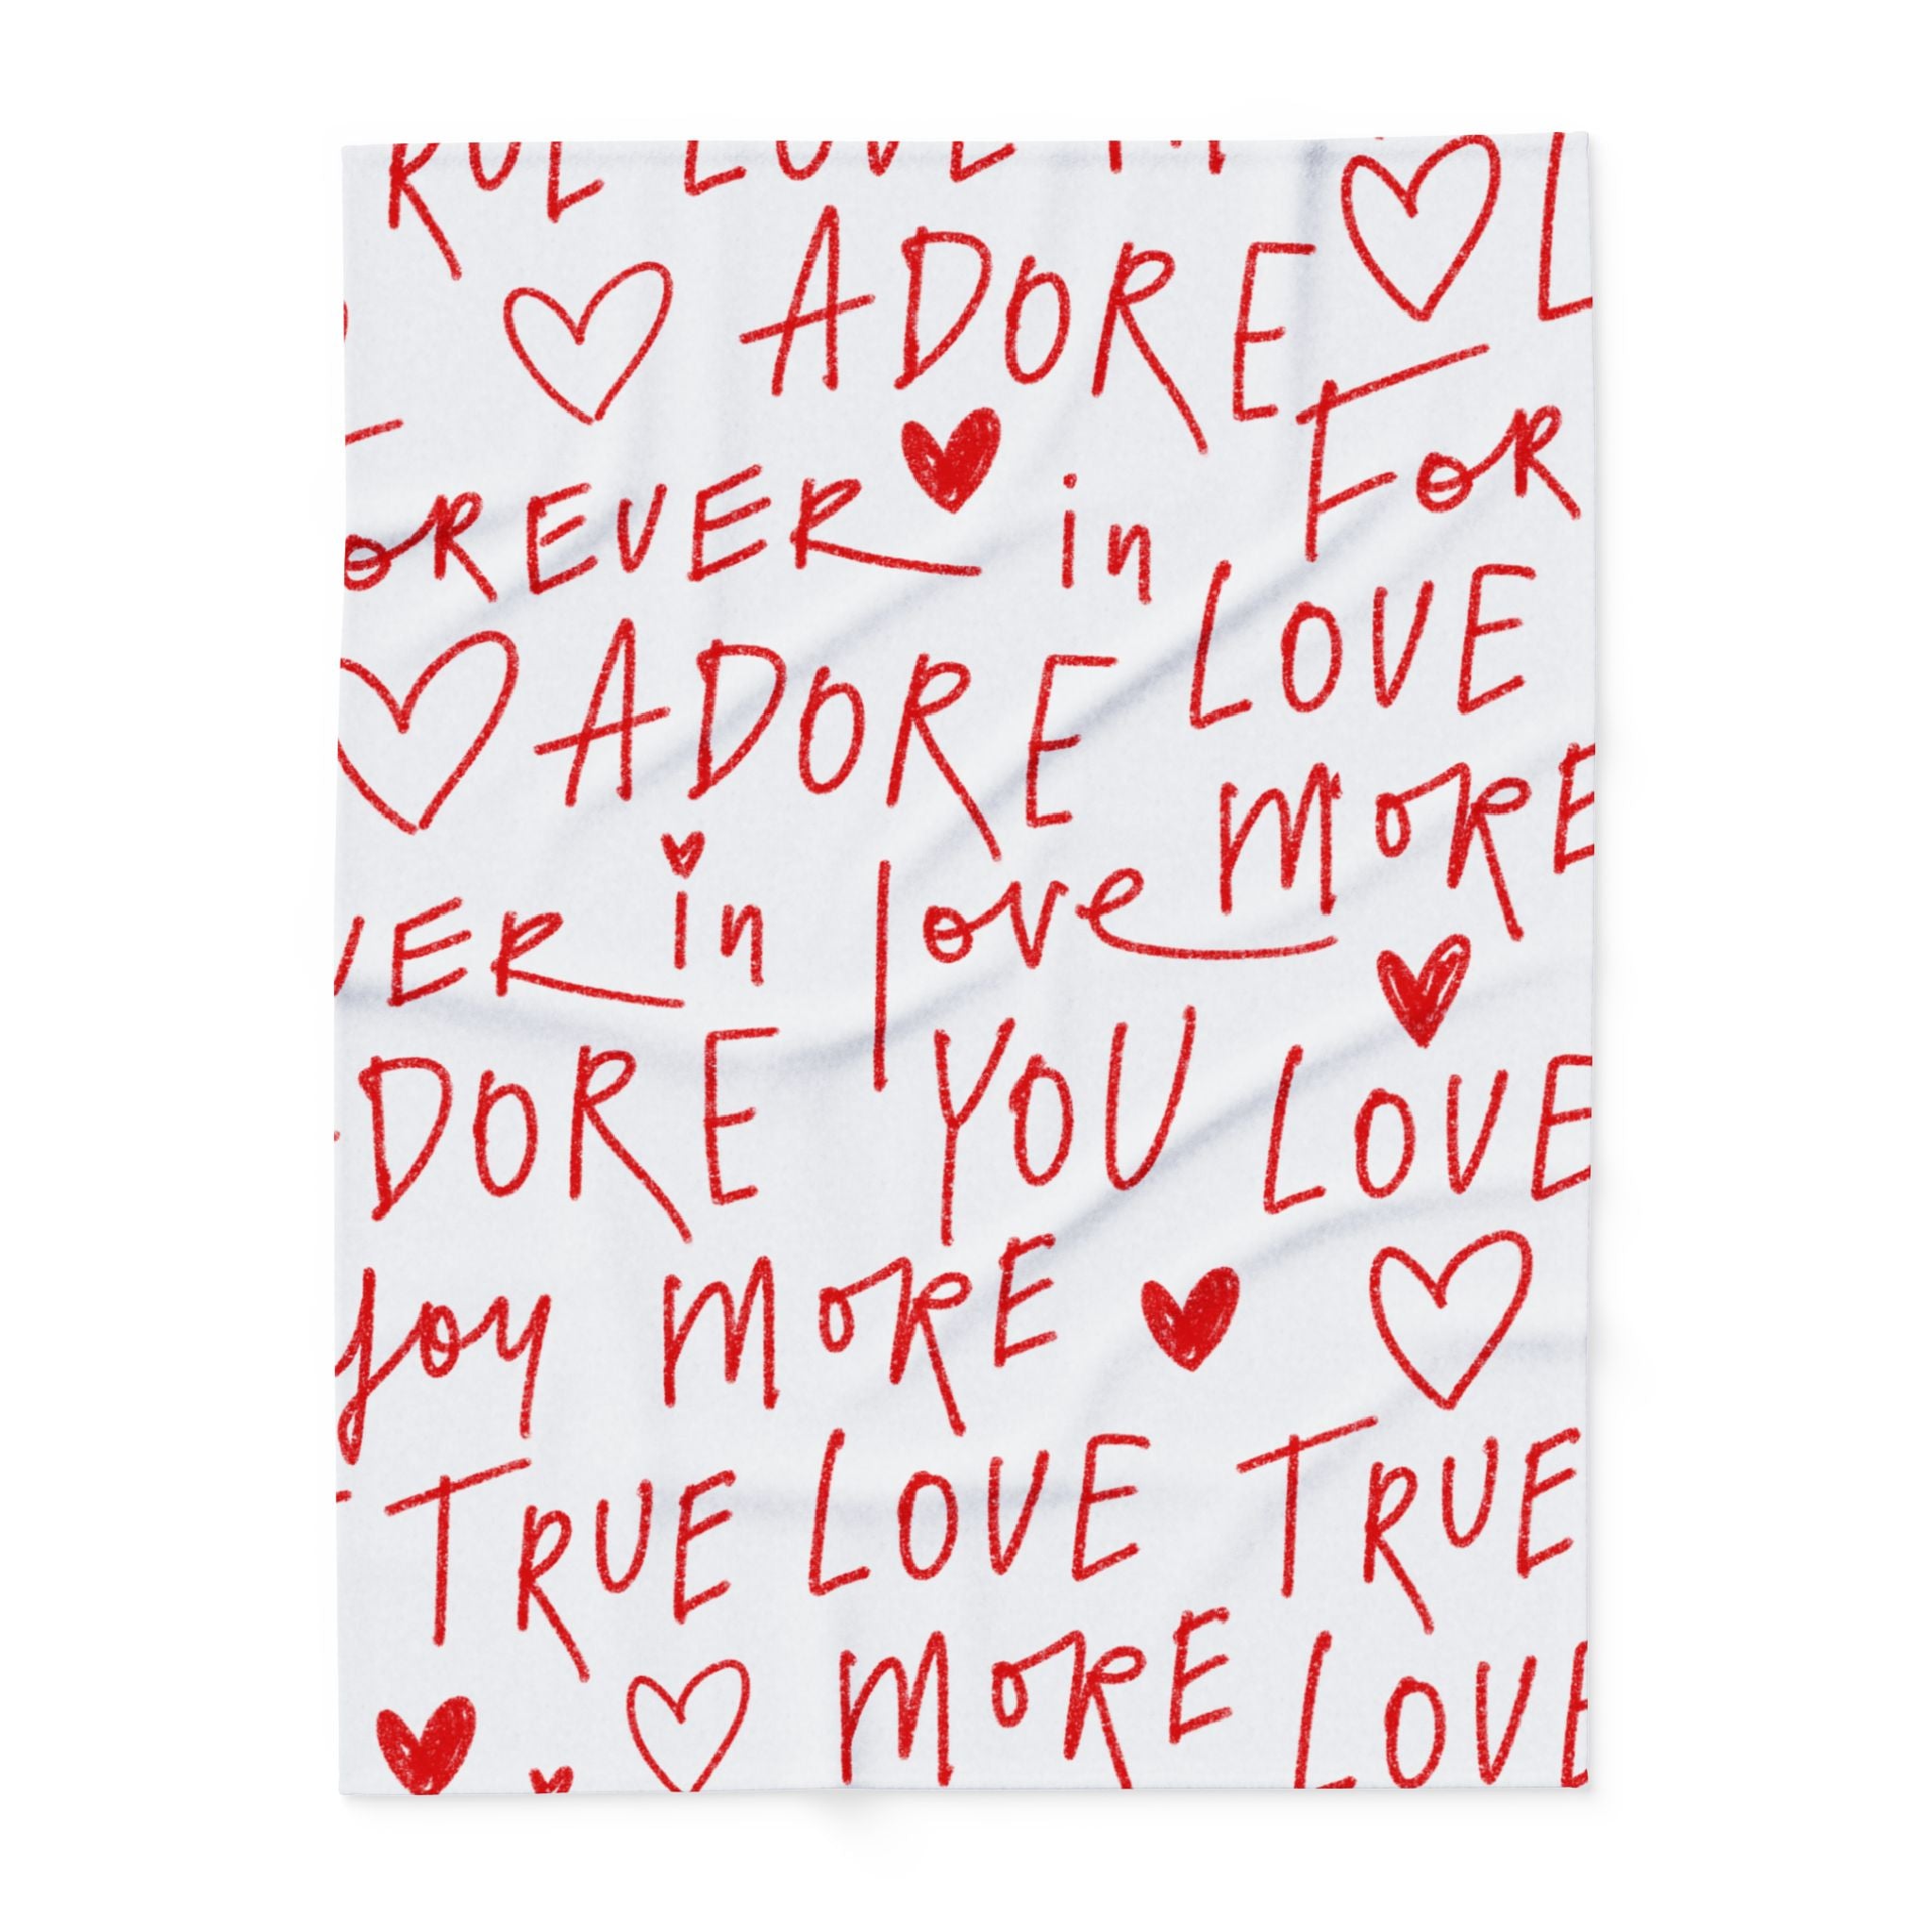 RUE LOVE
ADORE L
OREVER in FOR
ADORE LOVE
MORE
VER in love
DORE YOU LOVE
Joy MORE
TRUE LOVE TRUE
MORE LOVE